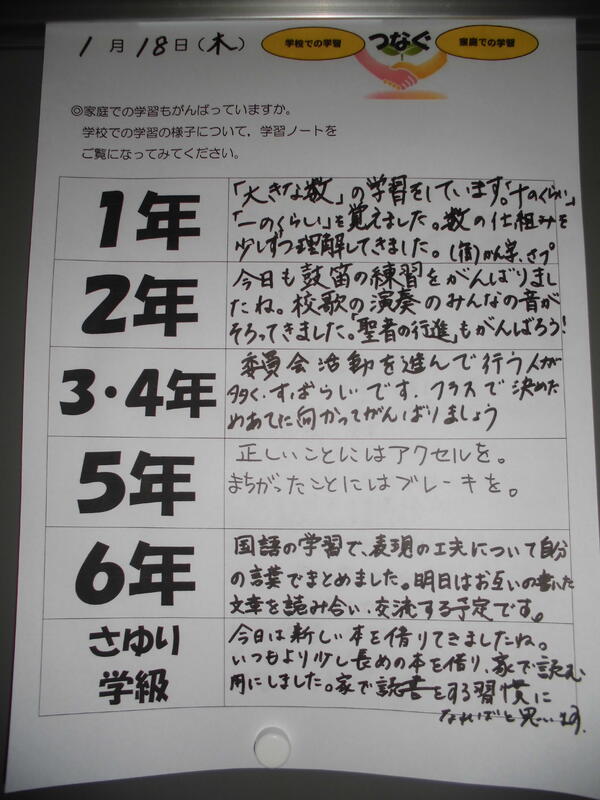 1月18日(木)
学校での学習 つなぐ 家庭での学習
◎家庭での学習もがんばっていますか。
学校での学習の様子について，学習ノートを
ご覧になってみてください。
1年
「大きな数」の学習をしています。「十のくらい」
「一のくらい」を覚えました。数の仕組みを
少しずつ理解してきました。(宿)かん字、さプ
2年
今日も鼓笛の練習をがんばりまし
たね。校歌の演奏のみんなの音が
そろってきました。「聖者の行進」もがんばろう!
3・4年
委員会活動を進んで行う人が
多く、すばらしいです。クラスで決めた
めあてに向かってがんばりましょう
5年
正しいことにはアクセルを。
まちがったことにはブレーキを。
6年
国語の学習で、表現の工夫について自分
の言葉でまとめました。明日はお互いの書いた
文章を読み合い、交流する予定です。
さゆり
学級
今日は新しい本を借りてきましたね。
いつもより少し長めの本を借り、家で読む
用にしました。家で読書をする習慣に
なればと思います。